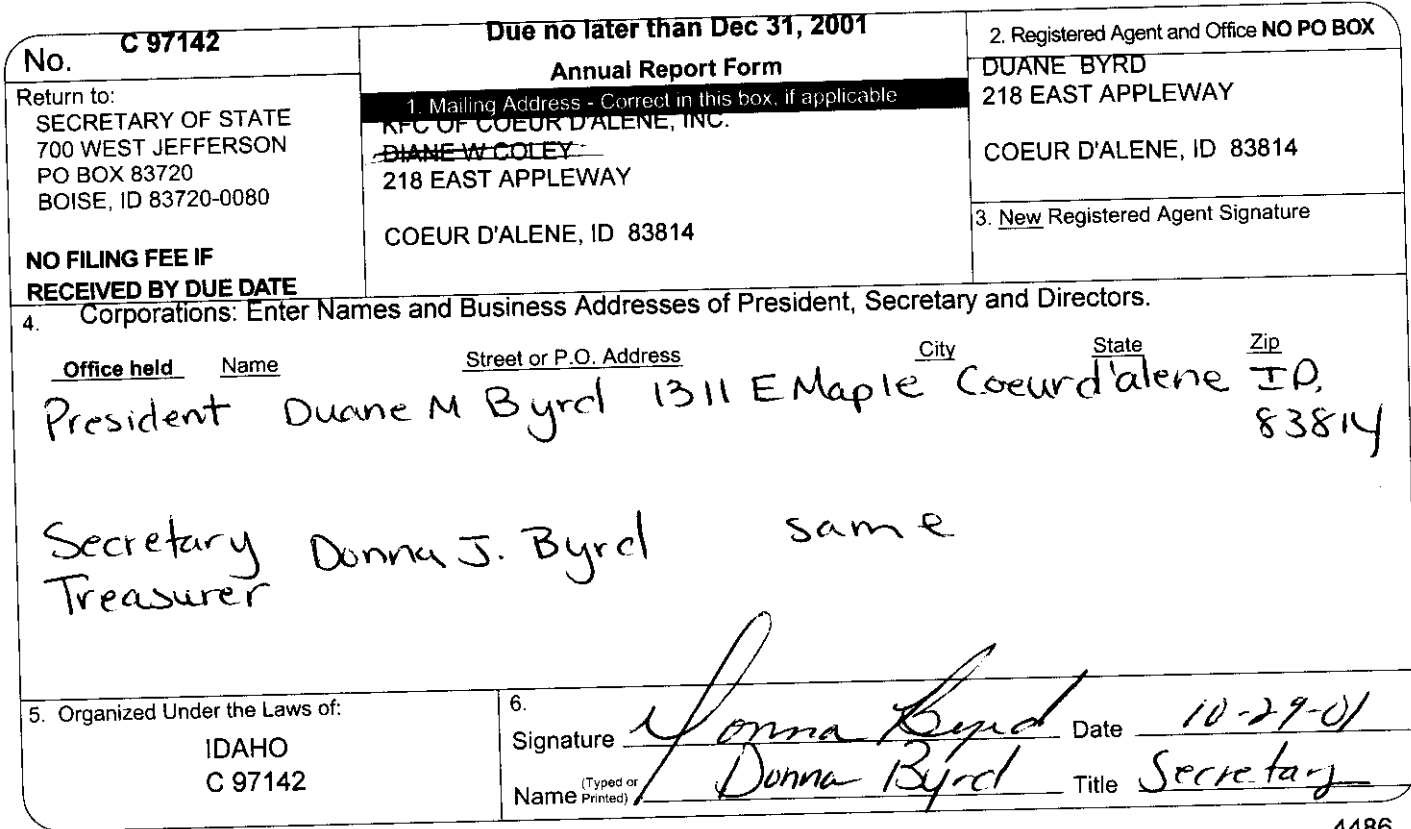 No. C 97142
Return to:
SECRETARY OF STATE
700 WEST JEFFERSON
PO BOX 83720
BOISE, ID 83720-0080
NO FILING FEE IF
RECEIVED BY DUE DATE
Due no later than Dec 31, 2001
Annual Report Form
1. Mailing Address - Correct in this box, if applicable
KFC OF COEUR D'ALENE, INC.
DIANE W COLEY
218 EAST APPLEWAY
COEUR D'ALENE, ID 83814
2. Registered Agent and Office NO PO BOX
DUANE BYRD
218 EAST APPLEWAY
COEUR D'ALENE, ID 83814
3. New Registered Agent Signature
4. Corporations: Enter Names and Business Addresses of President, Secretary and Directors.
Office held Name Street or P.O. Address City State Zip
President Duane M Byrd 1311 E Maple Coeurd'alene ID,
83814
Secretary Donna J. Byrd same
Treasurer
5. Organized Under the Laws of:
IDAHO
C 97142
6.
Signature Donna Byrd Date 10-29-01
Name (Typed or Printed) Donna Byrd Title Secretary
4486